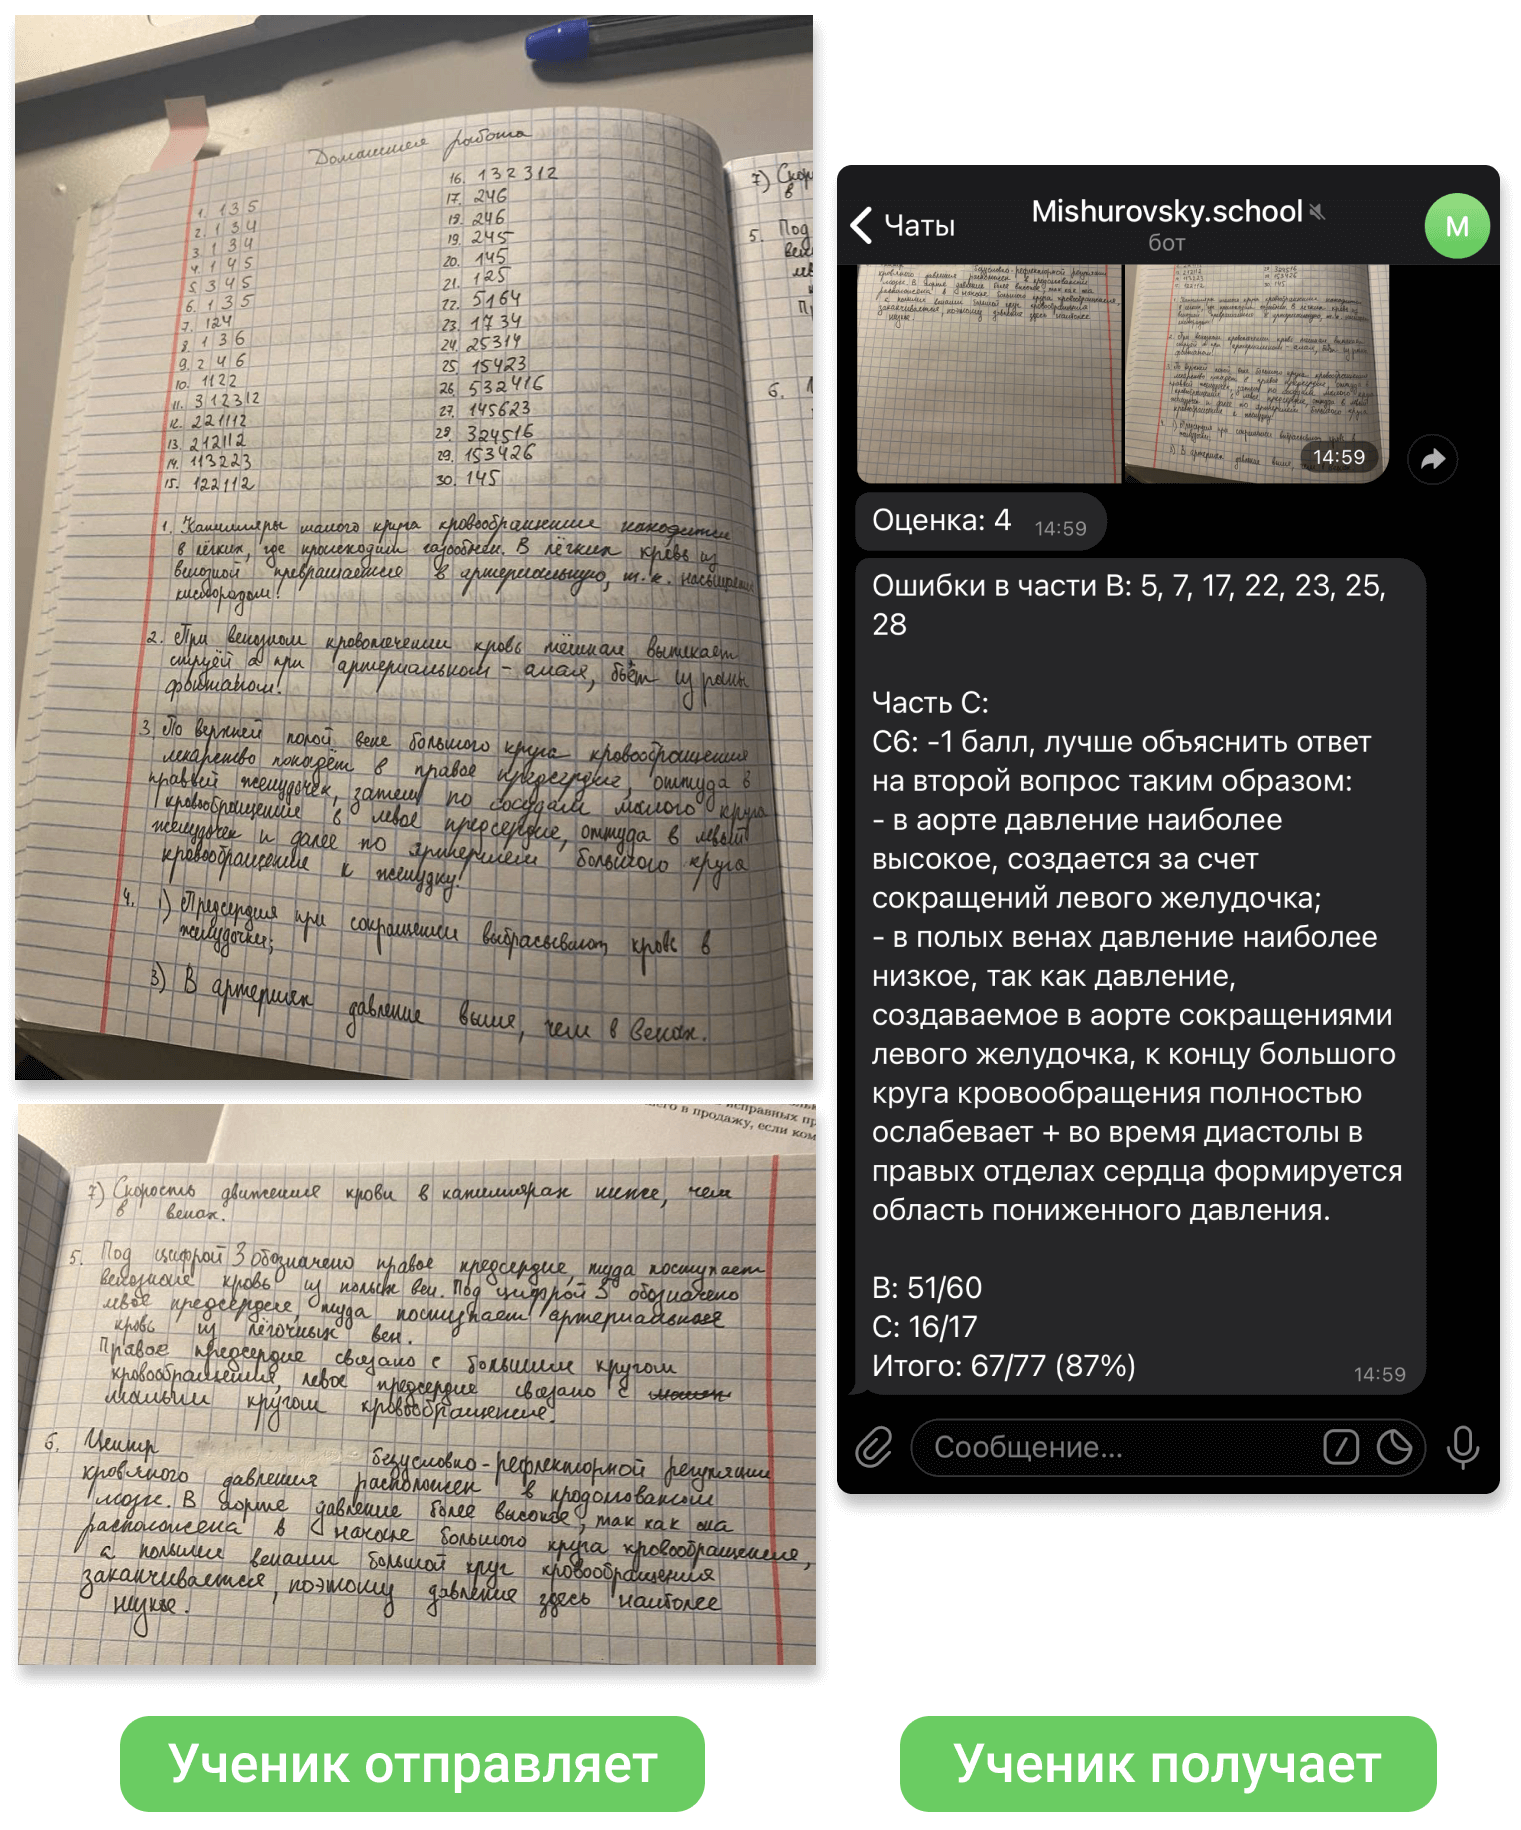 Домашняя работа
1. 135
2. 134
3. 134
4. 145
5. 345
6. 135
7. 124
8. 136
9. 246
10. 1122
11. 312312
12. 221112
13. 212112
14. 113223
15. 122112
16. 132312
17. 246
18. 246
19. 245
20. 145
21. 125
22. 5164
23. 1734
24. 25314
25. 15423
26. 532416
27. 145623
28. 324516
29. 153426
30. 145
1. Капилляры малого круга кровообращения находятся
в лёгких, где происходит газообмен. В лёгких кровь из
венозной превращается в артериальную, т.к. насыщается
кислородом!
2. При венозном кровотечении кровь тёмная вытекает
струёй а при артериальном - алая, бьёт из раны
фонтаном!
3. По верхней полой вене большого круга кровообращения
лекарство попадёт в правое предсердие, оттуда в
правый желудочек, затем по сосудам малого круга
кровообращения в левое предсердие, оттуда в левый
желудочек и далее по артериям большого круга
кровообращения к желудку!
4. 1) Предсердия при сокращении выбрасывают кровь в
желудочки;
3) В артериях давление выше, чем в венах.
7) Скор
в
5. Под
вен
6.
исправных пр
в продажу, если ком
7) Скорость движения крови в капиллярах ниже, чем
в венах.
5. Под цифрой 3 обозначено правое предсердие, туда поступает
венозная кровь из полых вен. Под цифрой 5 обозначено
левое предсердие, туда поступает артериальная
кровь из лёгочных вен.
Правое предсердие связано с большим кругом
кровообращения, левое предсердие связано с
малым кругом кровообращения.
6. Центр безусловно-рефлекторной регуляции
кровяного давления расположен в продолговатом
мозге. В аорте давление более высокое, так как она
расположена в начале большого круга кровообращения,
а полыми венами большой круг кровообращения
заканчивается, поэтому давление здесь наиболее
низкое.
Чаты
Mishurovsky.school
бот
М
14:59
Оценка: 4 14:59
Ошибки в части В: 5, 7, 17, 22, 23, 25,
28
Часть С:
С6: -1 балл, лучше объяснить ответ
на второй вопрос таким образом:
- в аорте давление наиболее
высокое, создается за счет
сокращений левого желудочка;
- в полых венах давление наиболее
низкое, так как давление,
создаваемое в аорте сокращениями
левого желудочка, к концу большого
круга кровообращения полностью
ослабевает + во время диастолы в
правых отделах сердца формируется
область пониженного давления.
В: 51/60
С: 16/17
Итого: 67/77 (87%)
14:59
Сообщение...
Ученик отправляет
Ученик получает